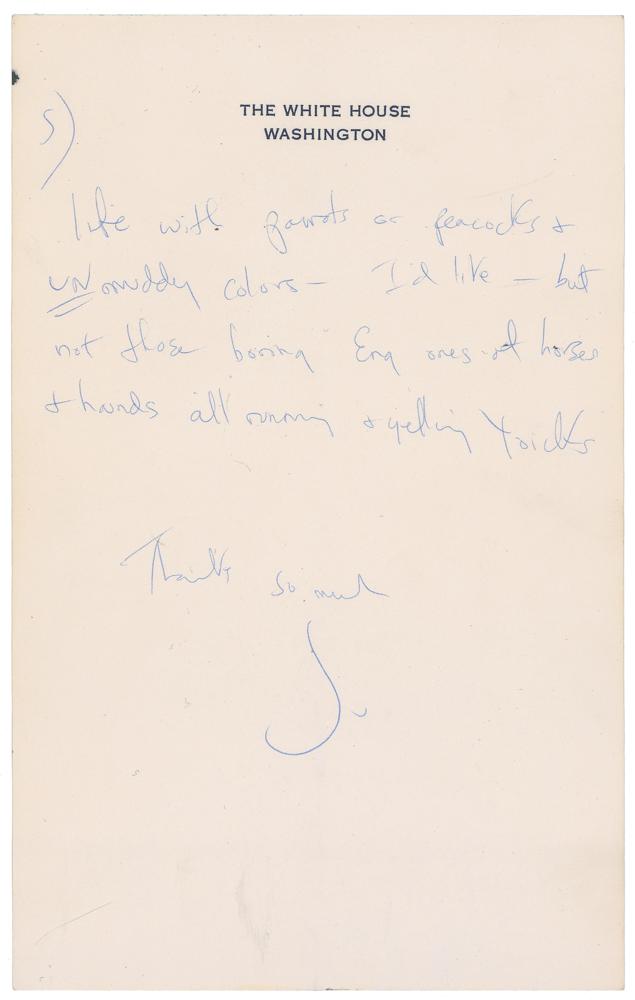 THE WHITE HOUSE
WASHINGTON
5)
life with parrots or peacocks &
UNmuddy colors — I'd like — but
not those boring Eng ones of horses
& hounds all running & yelling Yoicks
Thanks so much
J.